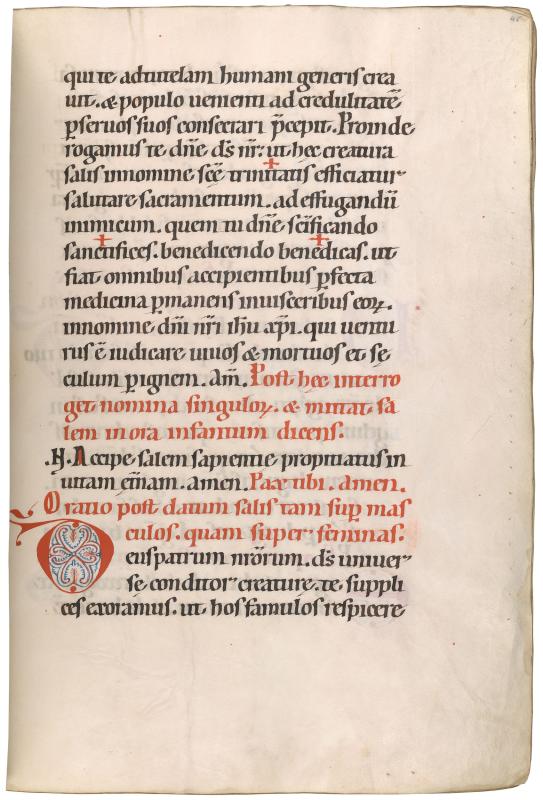 qui te ad tutelam humani generis crea
uit. & populo uenienti ad credulitatē
p̱ seruos suos consecrari p̄cepit. Proinde
rogamus te dn̄e ds̄ nr̄: ut hec creatura
salis in nomine scē trinitatis efficiatur
salutare sacramentum. ad effugandū
inimicum. quem tu dn̄e sc̄ificando
sanctifices. benedicendo benedicas. ut
fiat omnibus accipientibus p̱fecta
medicina p̱manens in uisceribus eoꝝ.
in nomine dn̄i nr̄i ih̄u xp̄i. qui uentu
rus ē iudicare uiuos & mortuos et se
culum p̱ ignem. Am̄. Post hec interro
get nomina singuloꝝ. & mittat sa
lem in ora infantum dicens.
.N. Accipe salem sapientie propitiatus in
uitam et̄nam. amen. Pax tibi. amen.
Oratio post datum salis tam sup̱ mas
culos. quam super feminas.
Deus patrum nr̄orum. ds̄ uniuer
se conditor creature. te suppli
ces exoramus. ut hos famulos respicere